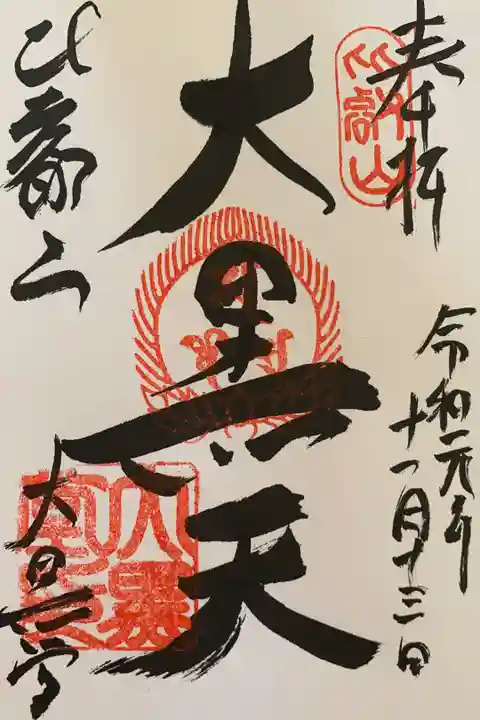 奉拝
比叡山
令和元年
十一月十三日
大黒天
比叡山
大黒堂